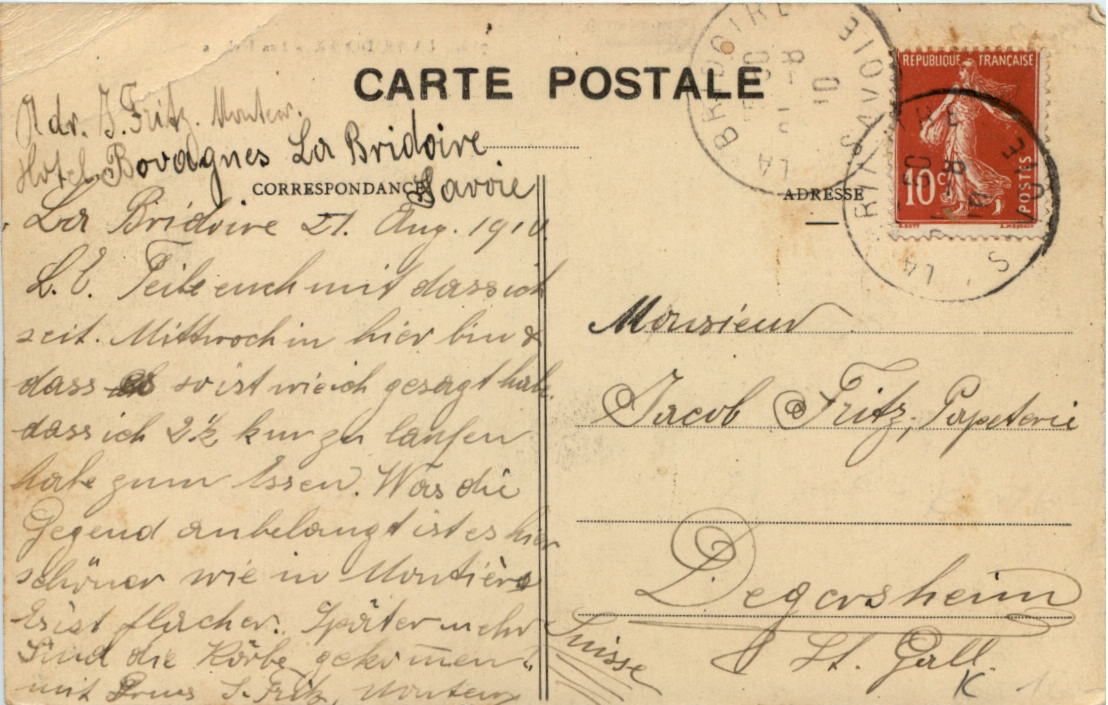 CARTE POSTALE
Adr. J. Fritz. Monteur.
Hotel Bovagnes La Bridoire
Savoie
CORRESPONDANCE
La Bridoire 21. Aug. 1910.
L. E. Teile euch mit dass ich
seit. Mittwoch in hier bin &
dass es so ist wie ich gesagt habe.
dass ich 2½ km zu laufen
habe zum Essen. Was die
Gegend anbelangt ist es hier
schöner wie in Moutiers
Es ist flacher. Später mehr
Sind die Körbe gekommen"
mit Gruss J. Fritz, Monteur
ADRESSE
REPUBLIQUE FRANÇAISE
10c POSTES
LA BRIDOIRE
SAVOIE
Monsieur
Jacob Fritz, Papeterie
Degersheim
Ct St. Gall.
Suisse